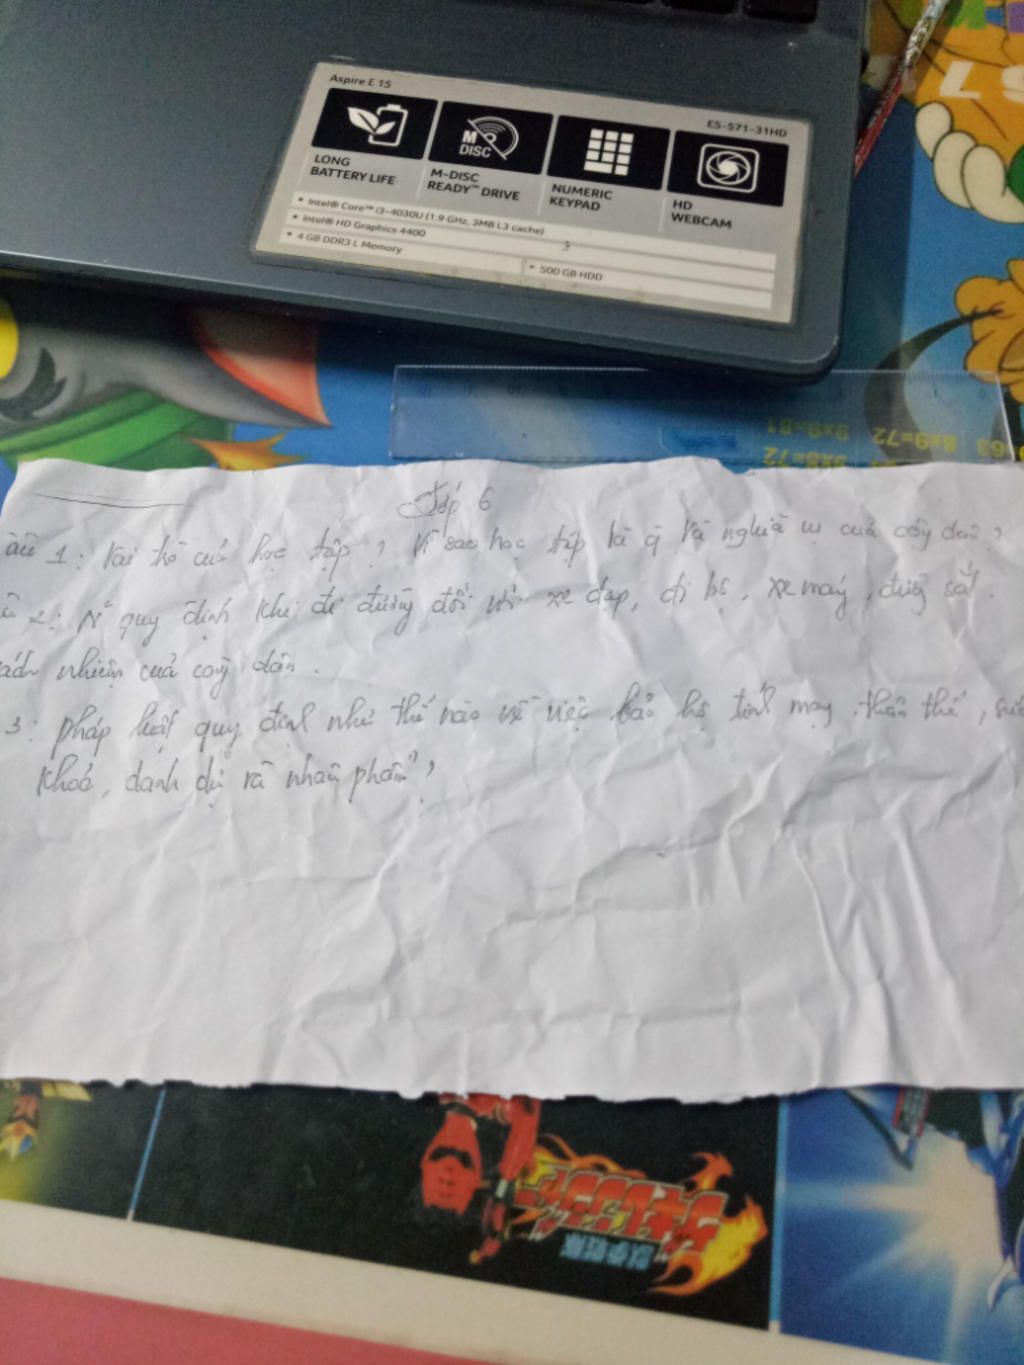 Aspire E 15
E5-571-31HD
LONG
BATTERY LIFE
M
DISC
M-DISC
READY™ DRIVE
NUMERIC
KEYPAD
HD
WEBCAM
• Intel® Core™ i3-4030U (1.9 GHz, 3MB L3 cache)
• Intel® HD Graphics 4400
• 4 GB DDR3 L Memory
• 500 GB HDD
8x9=72 9x9=81
Lớp 6
âu 1: Vai trò của học tập? Vì sao học tập là q và nghĩa vụ của công dân?
2: N quy định khi đi đường đối với xe đạp, đi bộ, xe máy, đường sắt.
ách nhiệm của công dân.
3: pháp luật quy định như thế nào về việc bảo hộ tính mạng thân thể, sức
khoẻ, danh dự và nhân phẩm?